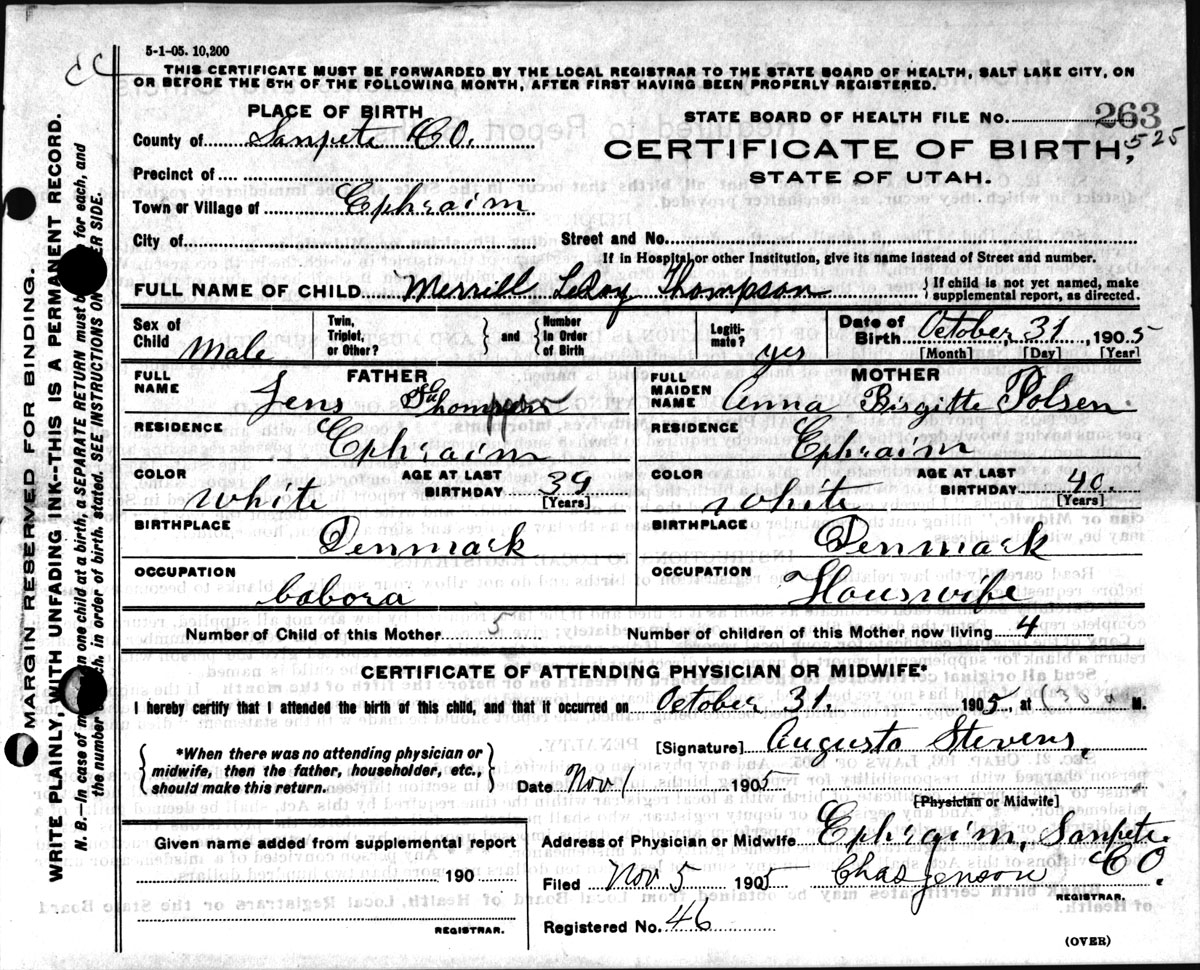 5-1-05. 10,200
THIS CERTIFICATE MUST BE FORWARDED BY THE LOCAL REGISTRAR TO THE STATE BOARD OF HEALTH, SALT LAKE CITY, ON
OR BEFORE THE 5TH OF THE FOLLOWING MONTH, AFTER FIRST HAVING BEEN PROPERLY REGISTERED.
PLACE OF BIRTH
County of Sanpete CO.
Precinct of
Town or Village of Ephraim
City of
STATE BOARD OF HEALTH FILE NO. 263
525
CERTIFICATE OF BIRTH,
STATE OF UTAH.
Street and No.
If in Hospital or other Institution, give its name instead of Street and number.
FULL NAME OF CHILD Merrill LeRoy Thompson { If child is not yet named, make
supplemental report, as directed.
Sex of Child Male
Twin, Triplet, or Other? } and { Number in Order of Birth
Legiti-mate? yes
Date of Birth October, 31, 1905
[Month] [Day] [Year]
FATHER
FULL NAME Jens Thompson
RESIDENCE Ephraim
COLOR White AGE AT LAST BIRTHDAY 39 [Years]
BIRTHPLACE Denmark
OCCUPATION
MOTHER
FULL MAIDEN NAME Anna Birgitte Polsen
RESIDENCE Ephraim
COLOR White AGE AT LAST BIRTHDAY 40. [Years]
BIRTHPLACE Denmark
OCCUPATION Houswife
Number of Child of this Mother 5
Number of children of this Mother now living 4
CERTIFICATE OF ATTENDING PHYSICIAN OR MIDWIFE*
I hereby certify that I attended the birth of this child, and that it occurred on October 31. 1905, at M.
{ *When there was no attending physician or
midwife, then the father, householder, etc.,
should make this return. }
[Signature] Augusta Stevens,
Date Nov 1 1905
[Physician or Midwife]
Given name added from supplemental report
190
REGISTRAR.
Address of Physician or Midwife Ephraim, Sanpete CO.
Filed Nov 5 1905 Chas Jenson
REGISTRAR.
Registered No. 46
(OVER)
MARGIN RESERVED FOR BINDING.
WRITE PLAINLY, WITH UNFADING INK--THIS IS A PERMANENT RECORD.
N. B.--In case of more than one child at a birth, a SEPARATE RETURN must be for each, and
the number in order of birth, stated. SEE INSTRUCTIONS ON OTHER SIDE.